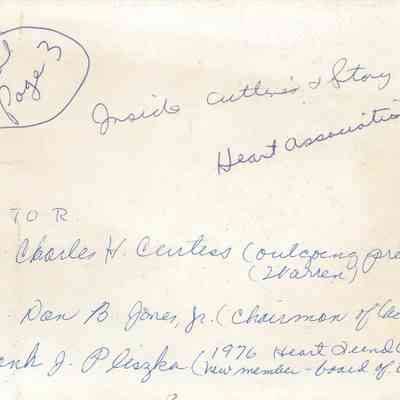 Page 3
Inside Cutlines & Story
Heart Association
L TO R
Charles H. Curtiss (outgoing pre
(Warren)
Don B. Jones, Jr. (Chairman of
J. Pliszka (1976 Heart Fund
New member - board of